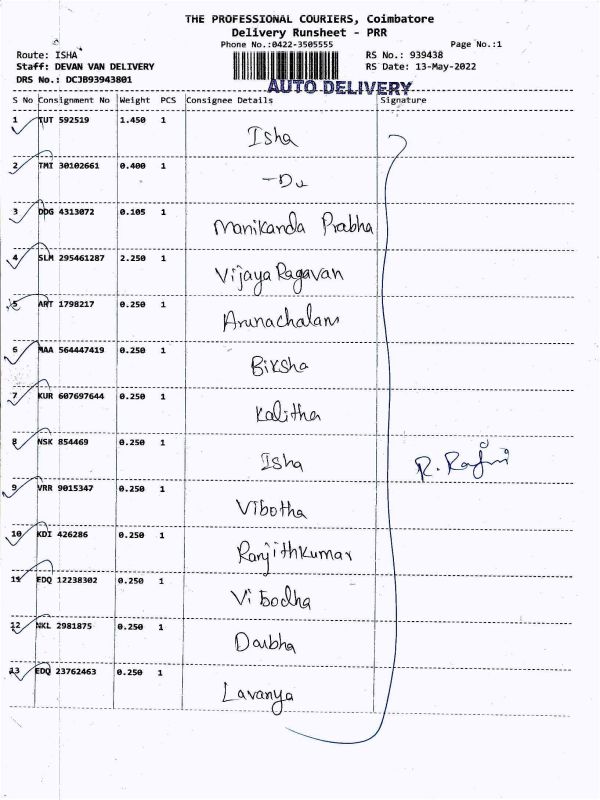 THE PROFESSIONAL COURIERS, Coimbatore
Delivery Runsheet - PRR
Phone No.:0422-3505555
Page No.:1
Route: ISHA
RS No.: 939438
Staff: DEVAN VAN DELIVERY
RS Date: 13-May-2022
DRS No.: DCJB93943801
AUTO DELIVERY
S No Consignment No Weight PCS Consignee Details Signature
1 TUT 592519 1.450 1
Isha
2 TMI 30102661 0.400 1
-Du
3 DDG 4313072 0.105 1
Manikanda Prabha
4 SLM 295461287 2.250 1
Vijaya Ragavan
5 ART 1798217 0.250 1
Arunachalam
6 MAA 564447419 0.250 1
Biksha
7 KUR 607697644 0.250 1
Kalitha
8 NSK 854469 0.250 1
Isha
R. Rajni
9 VRR 9015347 0.250 1
Vibotha
10 KDI 426286 0.250 1
Ranjithkumar
11 EDQ 12238302 0.250 1
Vibodha
12 NKL 2981875 0.250 1
Daubha
13 EDQ 23762463 0.250 1
Lavanya